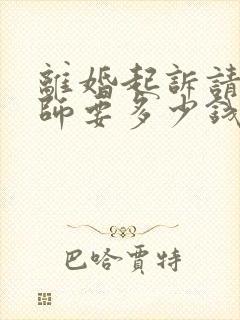 離婚起訴請
師要多少錢
巴哈賈特